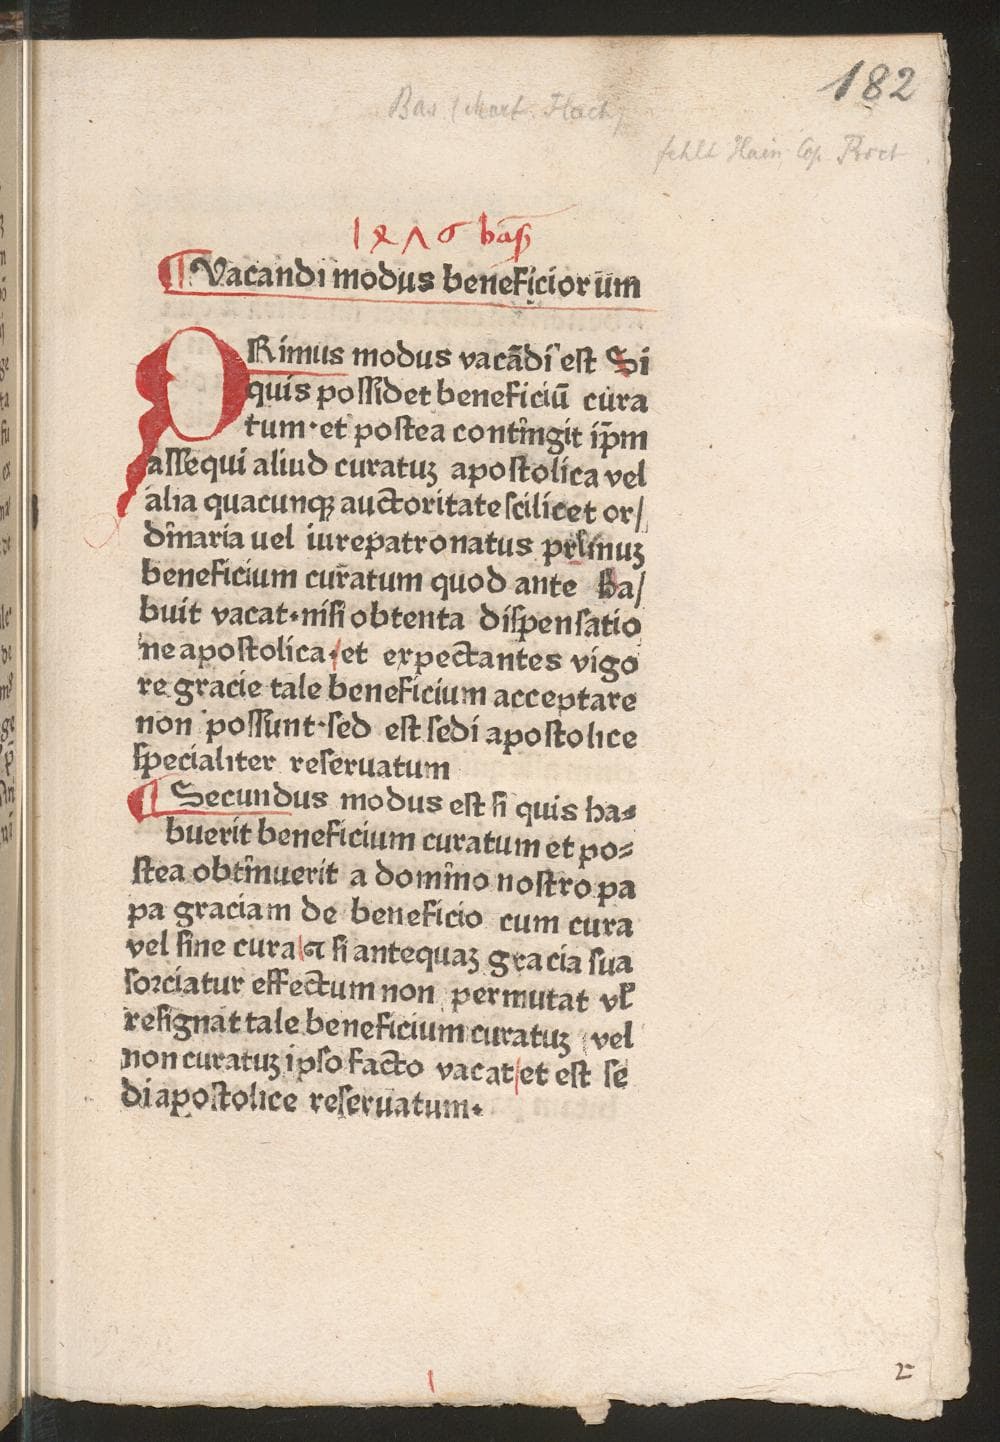 182
Bas (Mart. Flach)
fehlt Hain, Cop. Proct
1476 bas
¶ Vacandi modus beneficiorum
PRimus modus vacādi est Si
quis possidet beneficiū cura
tum·et postea contingit ip̄m
assequi aliud curatuꝫ apostolica vel
alia quacunqꝫ auctoritate scilicet or/
dinaria uel iurepatronatus primuꝫ
beneficium curatum quod ante ha/
buit vacat·nisi obtenta dispensatio
ne apostolica·et expectantes vigo
re gracie tale beneficium acceptare
non possunt·sed est sedi apostolice
specialiter reseruatum
¶ Secundus modus est si quis ha⸗
buerit beneficium curatum et po⸗
stea obtinuerit a domino nostro pa
pa graciam de beneficio cum cura
vel sine cura ⁊ si antequaꝫ gracia sua
sorciatur effectum non permutat vl̄
resignat tale beneficium curatuꝫ vel
non curatuꝫ ipso facto vacat et est se
di apostolice reseruatum·